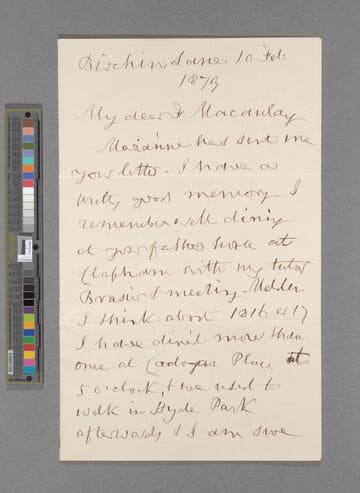 Birchin Lane 10 Feb
1879
My dear F Macaulay
Marianne has sent me
your letter. I have a
pretty good memory - I
remember well dining
at your fathers house at
Clapham with my tutor
Brasier & meeting
I think about 1816 or 17
I have dined more than
once at Cadogan Place at
5 o'clock, & we used to
walk in Hyde Park
afterwards & I am sure